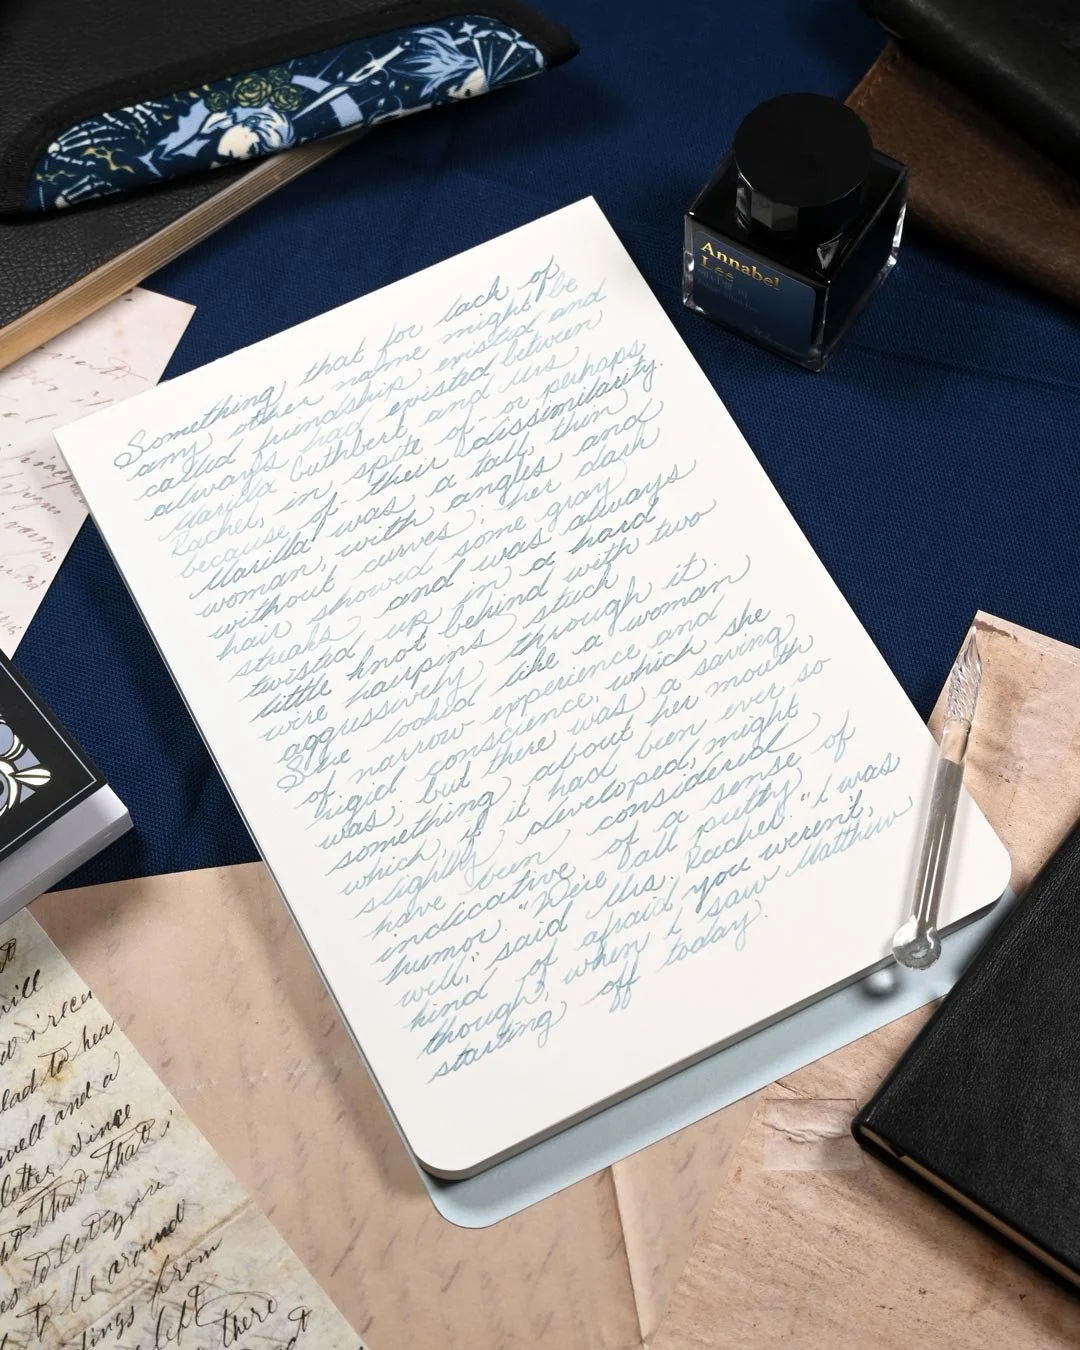 Something that for lack of
any other name might be
called friendship existed and
always had existed between
Marilla Cuthbert and Mrs
Rachel, in spite of - or perhaps
because of - their dissimilarity.
Marilla was a tall, thin
woman, with angles and
without curves; her dark
hair showed some gray
streaks and was always
twisted up in a hard
little knot behind with two
wire hairpins stuck
aggressively through it.
She looked like a woman
of narrow experience and
rigid conscience, which she
was; but there was a saving
something about her mouth
which, if it had been ever so
slightly developed, might
have been considered
indicative of a sense of
humor. "We're all pretty
well," said Mrs. Rachel. "I was
kind of afraid you weren't,
though, when I saw Matthew
starting off today.
Annabel
Lee
will
glad to hea
well and a
letter since
that that i
to be around
from
left
there